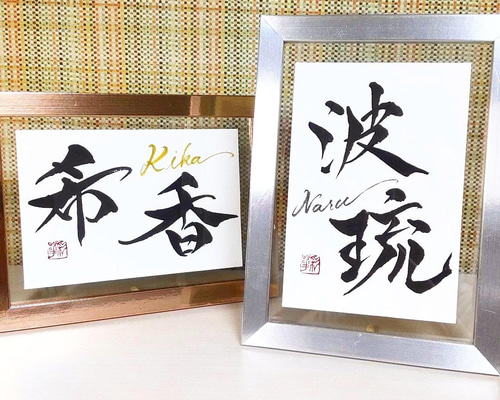 希香
Kika
波琉
Naru